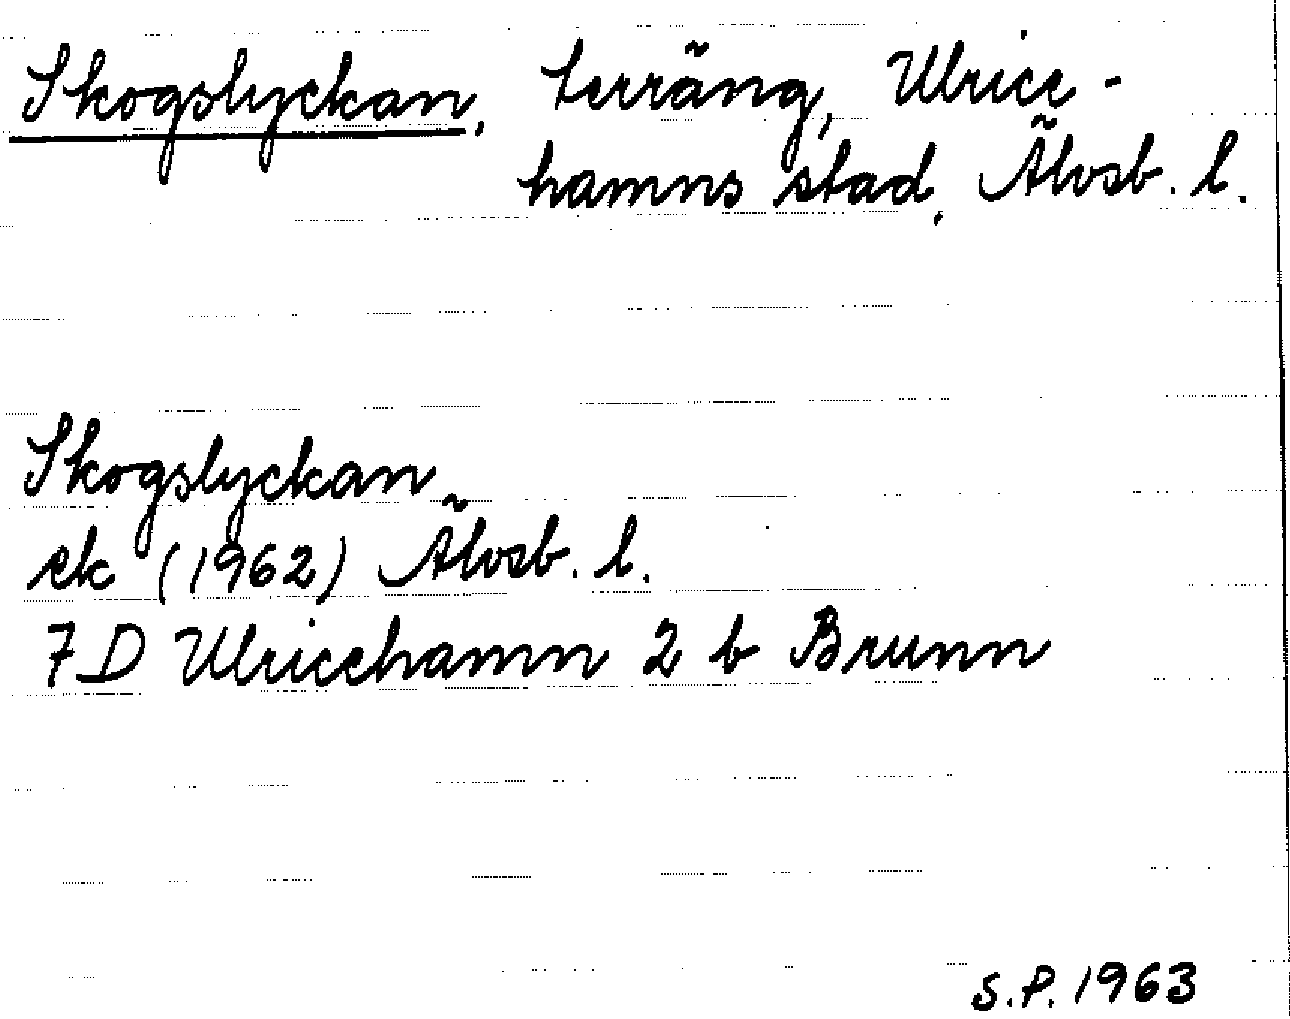 Skogslyckan, terräng, Ulrice-
hamns stad, Älvsb. l.
Skogslyckan
ek (1962) Älvsb. l.
7D Ulricehamn 2 b Brunn
S.P. 1963